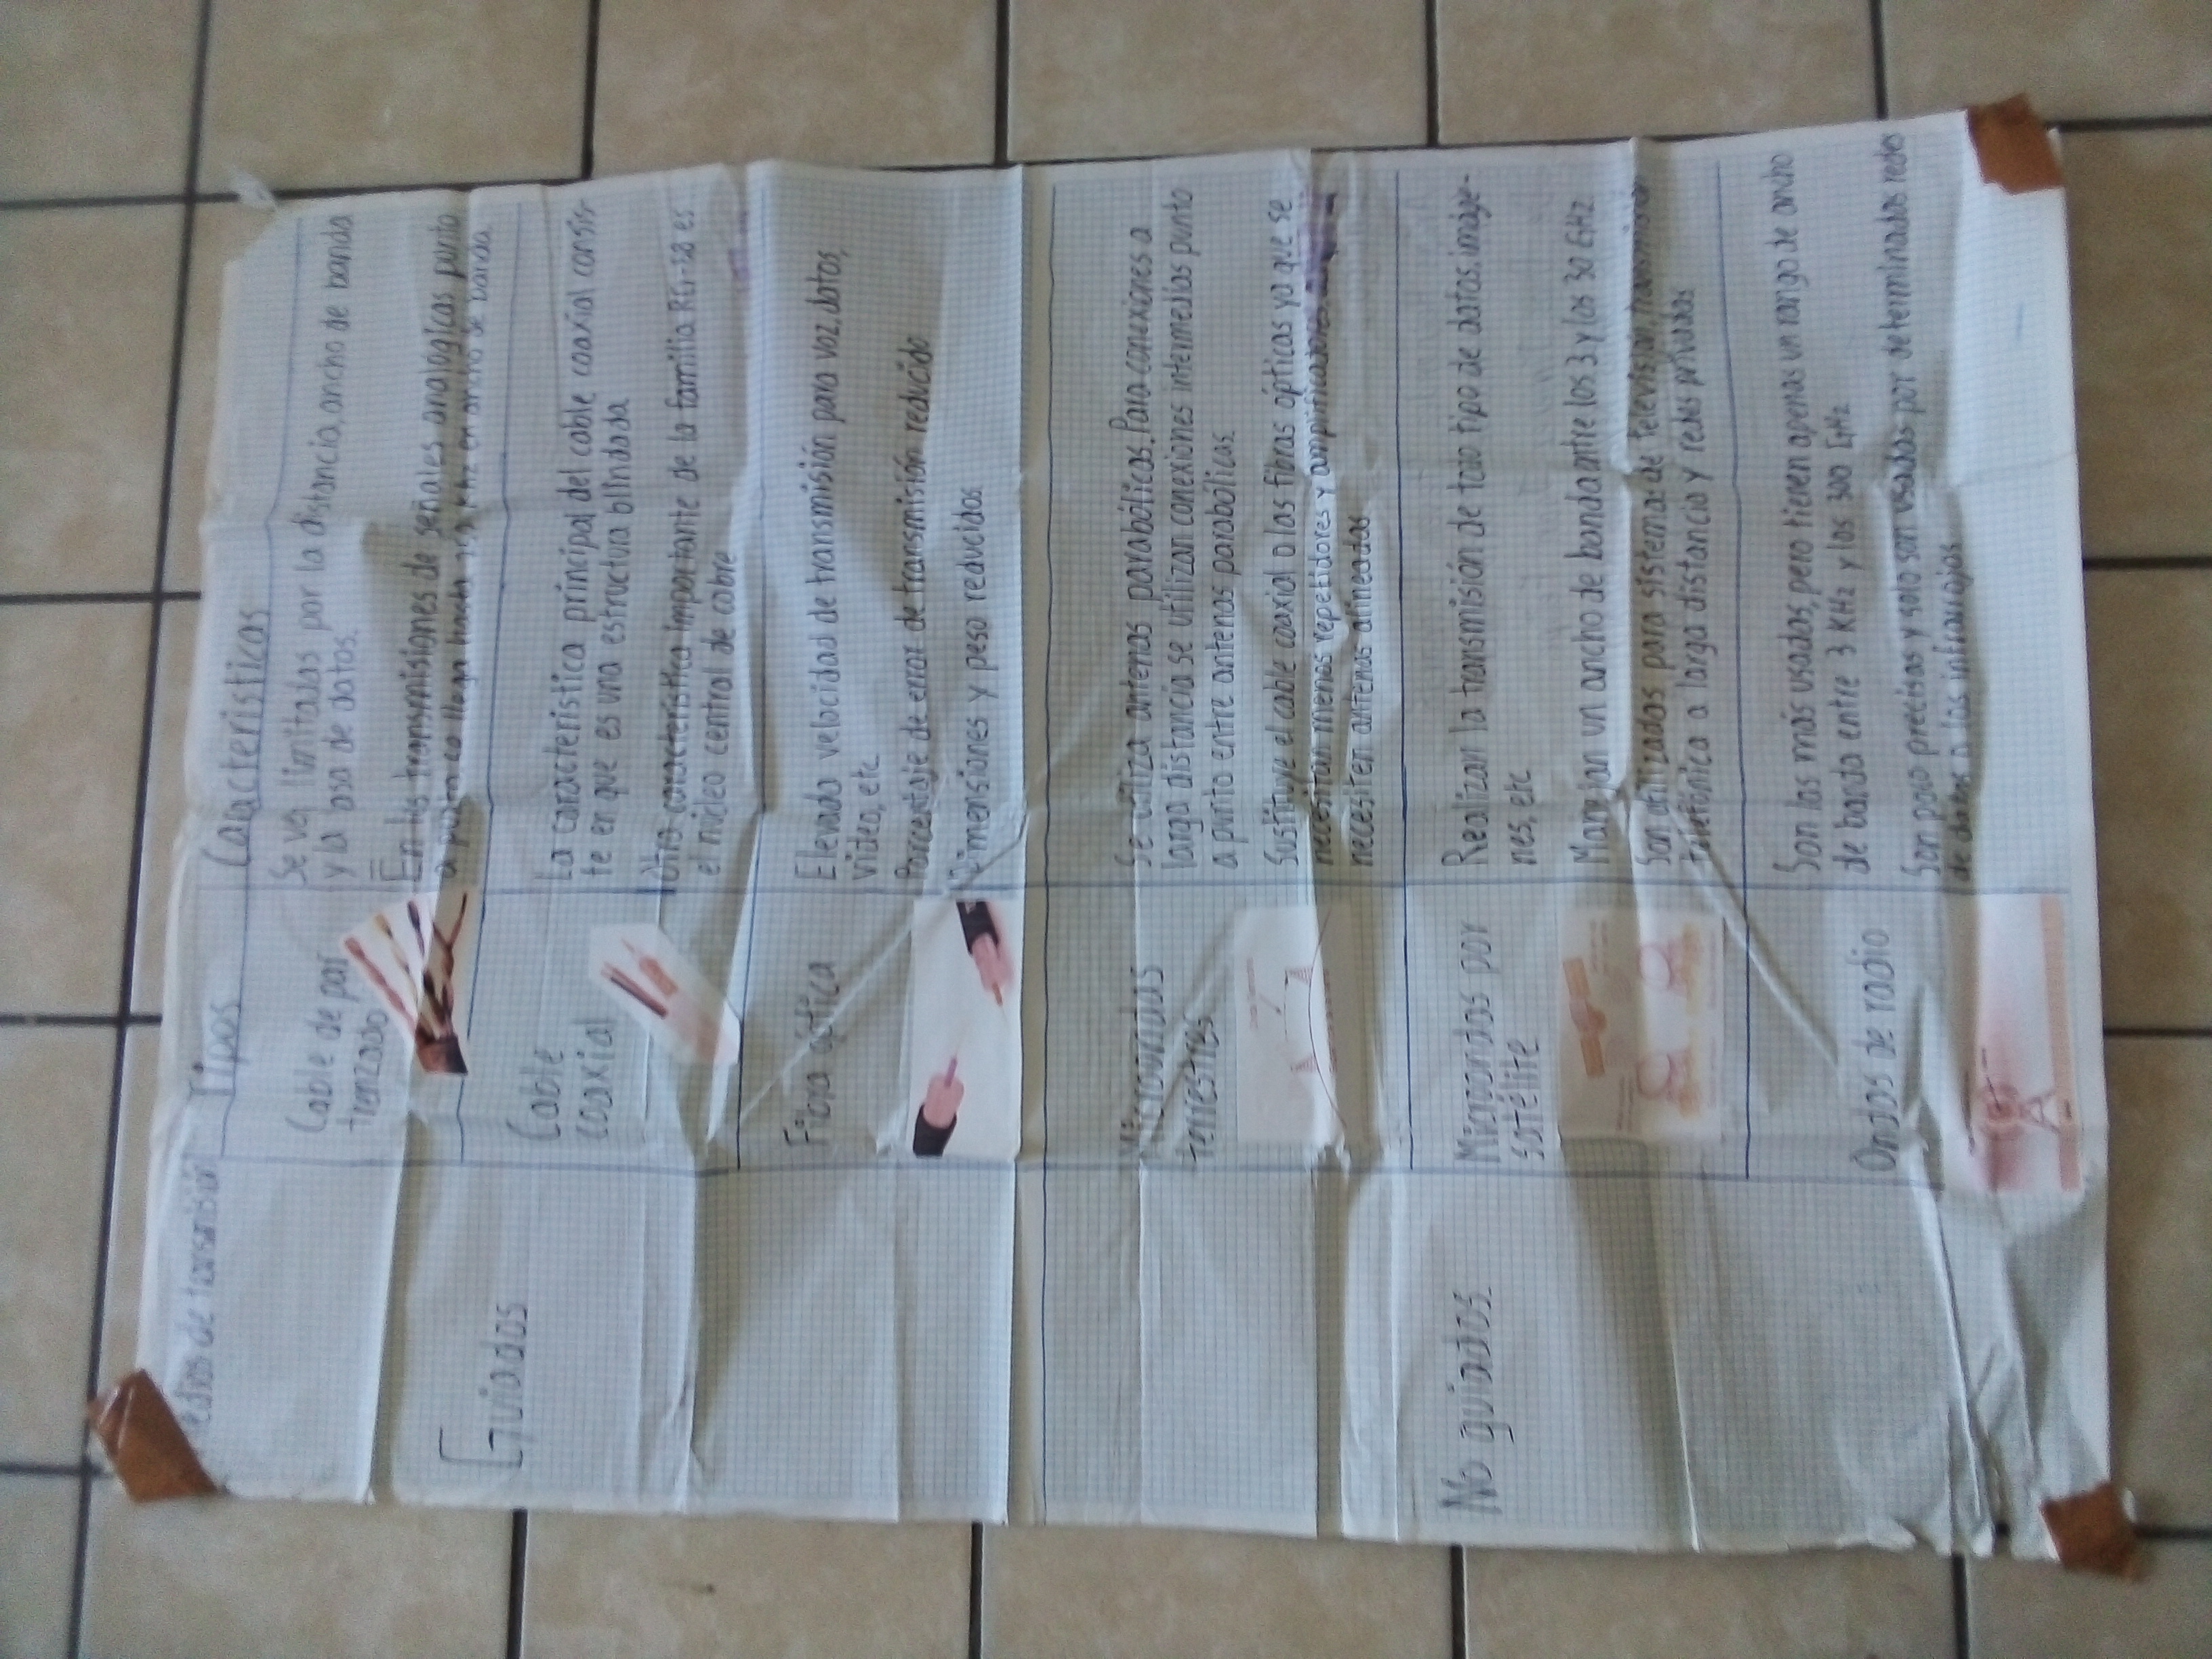 Medios de transmisión
Tipos
Características
Guiados
Cable de par
trenzado
Se ve limitados por la distancia, ancho de banda
y la tasa de datos.
En las transmisiones de señales analogicas punto
a punto ca llega hasta KHz en ancho de banda.
Cable
coaxial
La caracteristica principal del cable coaxial consis-
te en que es una estructura blindada
Otra caracteristica importante de la familia RG-58 es
el núcleo central de cobre
Fibra óptica
Elevada velocidad de transmisión para voz, datos,
video, etc
Porcentaje de error de transmisión reducido
Dimensiones y peso reducidos
No guiados
Microondas
terrestres
Se utiliza antenas parabólicas. Para conexiones a
larga distancia se utilizan conexiones intermedias punto
a punto entre antenas parabólicas.
Sustituye el cable coaxial o las fibras ópticas ya que se
necesitan menos repetidores y amplificadores
necesiten antenas alineadas
Microondas por
satélite
Realizan la transmisión de todo tipo de datos, imáge-
nes, etc
Manejan un ancho de banda entre los 3 y los 30 GHz
Son utilizados para sistema de televisión, transmisión
telefónica a larga distancia y redes privadas
Ondas de radio
Son las más usadas, pero tienen apenas un rango de ancho
de banda entre 3 KHz y los 300 GHz
Son poco precisas y solo son usadas por determinadas redes
de datos o los infrarojos